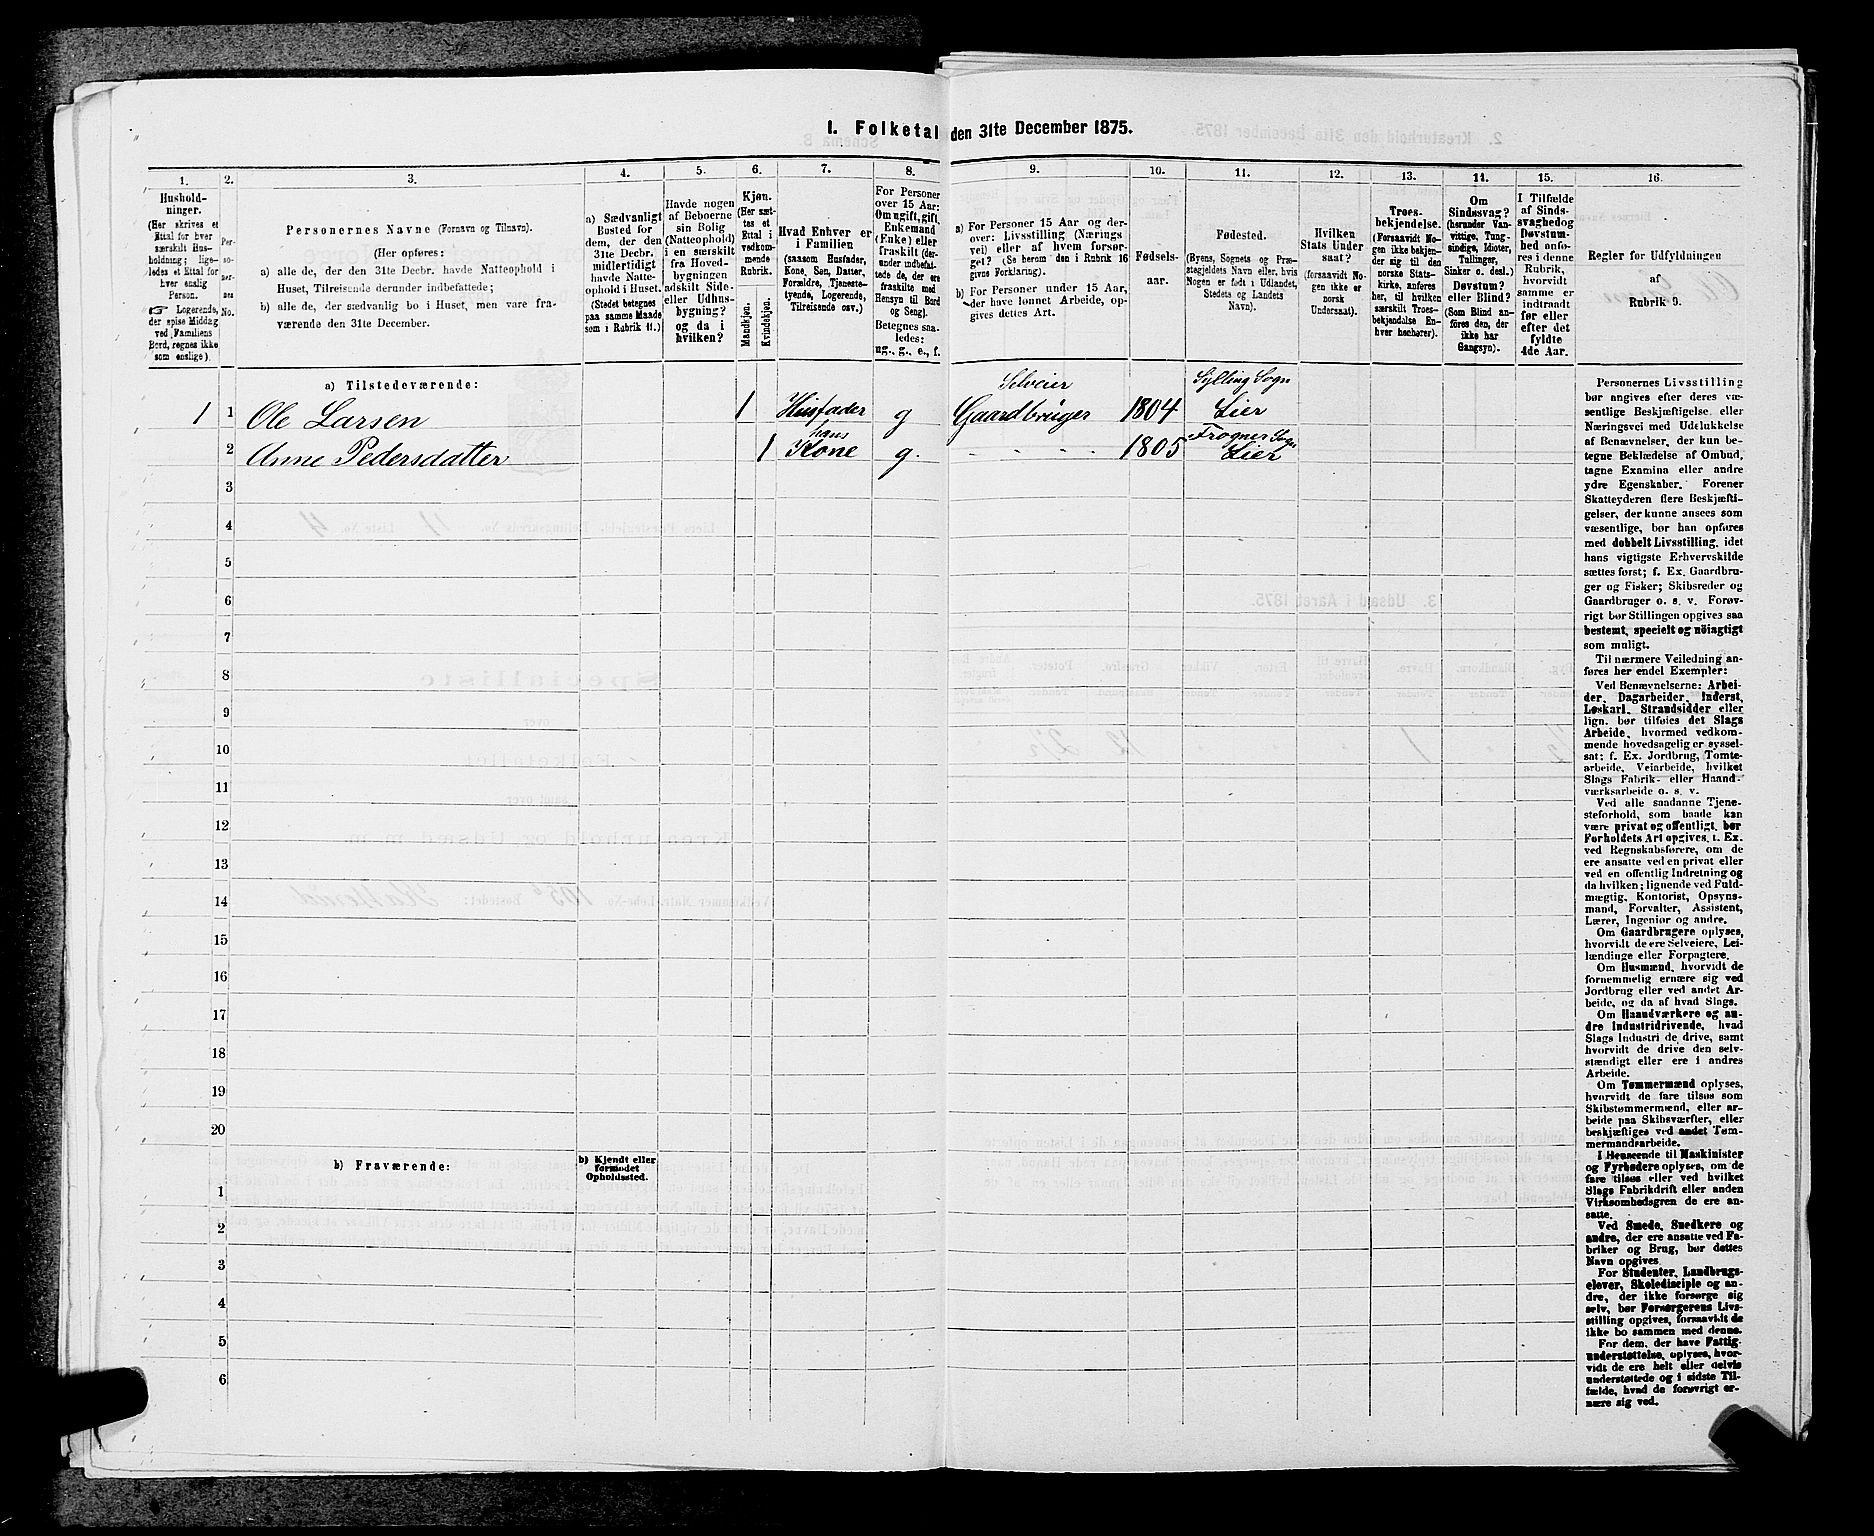 I. Folketal den 31te December 1875.
1. 2. 3. 4. 5. 6. 7. 8. 9. 10. 11. 12. 13. 14. 15. 16.
Hushold-
ninger.
(Her skrives et
Ettal for hver
særskilt Hus-
holdning; lige-
ledes et Ettal for
hver enslig
Person.
☞ Logerende,
der spise Middag
ved Familiens
Bord, regnes ikke
som enslige).
Per-
so-
ner-
nes
No.
Personernes Navne (Fornavn og Tilnavn).
(Her opføres:
a) alle de, der den 31te Decbr. havde Natteophold i
Huset, Tilreisende derunder indbefattede;
b) alle de, der sædvanlig bo i Huset, men vare fra-
værende den 31te December.
a) Sædvanligt
Bosted for
dem, der den
31te Decbr.
midlertidigt
havde Natte-
ophold i Huset.
(Stedet betegnes
paa samme Maade
som i Rubrik 11.)
Havde nogen
af Beboerne
sin Bolig
(Natteophold)
i en særskilt
fra Hoved-
bygningen
adskilt Side-
eller Udhus-
bygning?
og da i
hvilken?
Kjøn.
(Her sæt-
tes et
Ettal i
vedkom-
mende
Rubrik.
Mandkjøn.
Kvindekjøn.
Hvad Enhver er
i Familien
(saasom Husfader,
Kone, Søn, Datter,
Forældre, Tjeneste-
tyende, Logerende,
Tilreisende osv.)
For Personer
over 15 Aar:
Om ugift, gift,
Enkemand
(Enke) eller
fraskilt
(der-
under indbefat-
tede de, der ere
fraskilte med
Hensyn til Bord
og Seng).
Betegnes saa-
ledes:
ug., g., e., f.
a) For Personer 15 Aar og der-
over: Livsstilling (Nærings-
vei) eller af hvem forsør-
get? (Se herom den i Rubrik 16
givne Forklaring).
b) For Personer under 15 Aar,
der have lønnet Arbeide, op-
gives dettes Art.
Fødsels-
aar.
Fødested.
(Byens, Sognets og Præ-
stegjeldets Navn eller, hvis
Nogen er født i Udlandet,
Stedets og Landets
Navn).
Hvilken
Stats Under
saat?
(forsaavidt No-
gen ikke er
norsk
Undersaat).
Troes-
bekjendelse.
(Forsaavidt No-
gen ikke bekjen-
der sig til den
norske Stats-
kirke, anføres
her, til hvilken
særskilt Troes-
bekjendelse En-
hver henhører).
Om
Sindssvag?
(herunder Van-
vittige, Tung-
sindige, Idioter,
Tullinger,
Sinker o. desl.)
Døvstum?
eller Blind?
(Som Blind an-
føres den, der
ikke har
Gangsyn).
I Tilfælde
af Sinds-
svaghed og
Døvstum-
hed anfø-
res i denne
Rubrik,
hvorvidt
samme er
indtraadt
før eller
efter det
fyldte
4de Aar.
Regler for Udfyldningen
af
Rubrik 9.
a) Tilstedeværende:
Selveier Sylling Sogn
1 1 Ole Larsen 1 Husfader g Gaardbruger 1804 Lier
hans Frogner Sogn
2 Anne Pedersdatter 1 Kone g. 1805 Lier
3
4
5
6
7
8
9
10
11
12
13
14
15
16
17
18
19
20
b) Fraværende:
b) Kjendt eller
formodet
Opholdssted.
1
2
3
4
5
6
Personernes Livsstilling
bør angives efter deres væ-
sentlige Beskjæftigelse eller
Næringsvei med Udelukkelse
af Benævnelser, der kun be-
tegne Beklædelse af Ombud,
tagne Examina eller andre
ydre Egenskaber. Forener
Skatteyderen flere Beskjæfti-
gelser, der kunne ansees som
væsentlige, bør han opføres
med dobbelt Livsstilling, idet
hans vigtigste Erhvervskilde
sættes først; f. Ex. Gaardbru-
ger og Fisker; Skibsreder og
Gaardbruger o. s. v. Forøv-
rigt bør Stillingen opgives saa
bestemt, specielt og nöiagtigt
som muligt.
Til nærmere Veiledning an-
føres her endel Exempler:
Ved Benævnelserne: Arbei-
der, Dagarbeider, Inderst,
Løskarl, Strandsidder eller
lign. bør tilføies det Slags
Arbeide, hvormed vedkom-
mende hovedsagelig er syssel-
sat; f. Ex. Jordbrug, Tomte-
arbeide, Veiarbeide, hvilket
Slags Fabrik- eller Haand-
værksarbeide o. s. v.
Ved alle saadanne Tjene-
steforhold, som baade kan
være privat og offentligt, bør
Forholdets Art opgives, t. Ex.
ved Regnskabsførere, om de
ere ansatte ved en privat eller
ved en offentlig Indretning og
da hvilken; lignende ved Fuld-
mægtig, Kontorist, Opsyns-
mand, Forvalter, Assistent,
Lærer, Ingeniør og andre.
Om Gaardbrugere oplyses,
hvorvidt de ere Selveiere, Lei-
lændinge eller Forpagtere.
Om Husmænd, hvorvidt de
fornemmelig ernære sig ved
Jordbrug eller ved andet Ar-
beide, og da af hvad Slags.
Om Haandværkere og an-
dre Industridrivende, hvad
Slags Industri de drive, samt
hvorvidt de drive den selv-
stændigt eller ere i andres
Arbeide.
Om Tømmermænd oplyses,
hvorvidt de fare tilsøs som
Skibstømmermænd, eller ar-
beide paa Skibsværfter, eller
beskjæftiges ved andet Tøm-
mermandsarbeide.
I Henseende til Maskinister
og Fyrbødere oplyses, om de
fare tilsøs eller ved hvilket
Slags Fabrikdrift eller anden
Virksomhedsgren de ere an-
satte.
Ved Smede, Snedkere og
andre, der ere ansatte ved Fa-
briker og Brug, bør dettes
Navn opgives.
For Studenter, Landbrugs-
elever, Skoledisciple og an-
dre, der ikke forsørge sig
selv, bør Forsørgerens Livs-
stilling opgives, forsaavidt de
ikke bo sammen med denne.
For dem, der have Fattig-
understøttelse, oplyses, hvor-
vidt de ere helt eller delvis
understøttede og i sidste Til-
fælde, hvad de forøvrigt er-
nære sig ved.